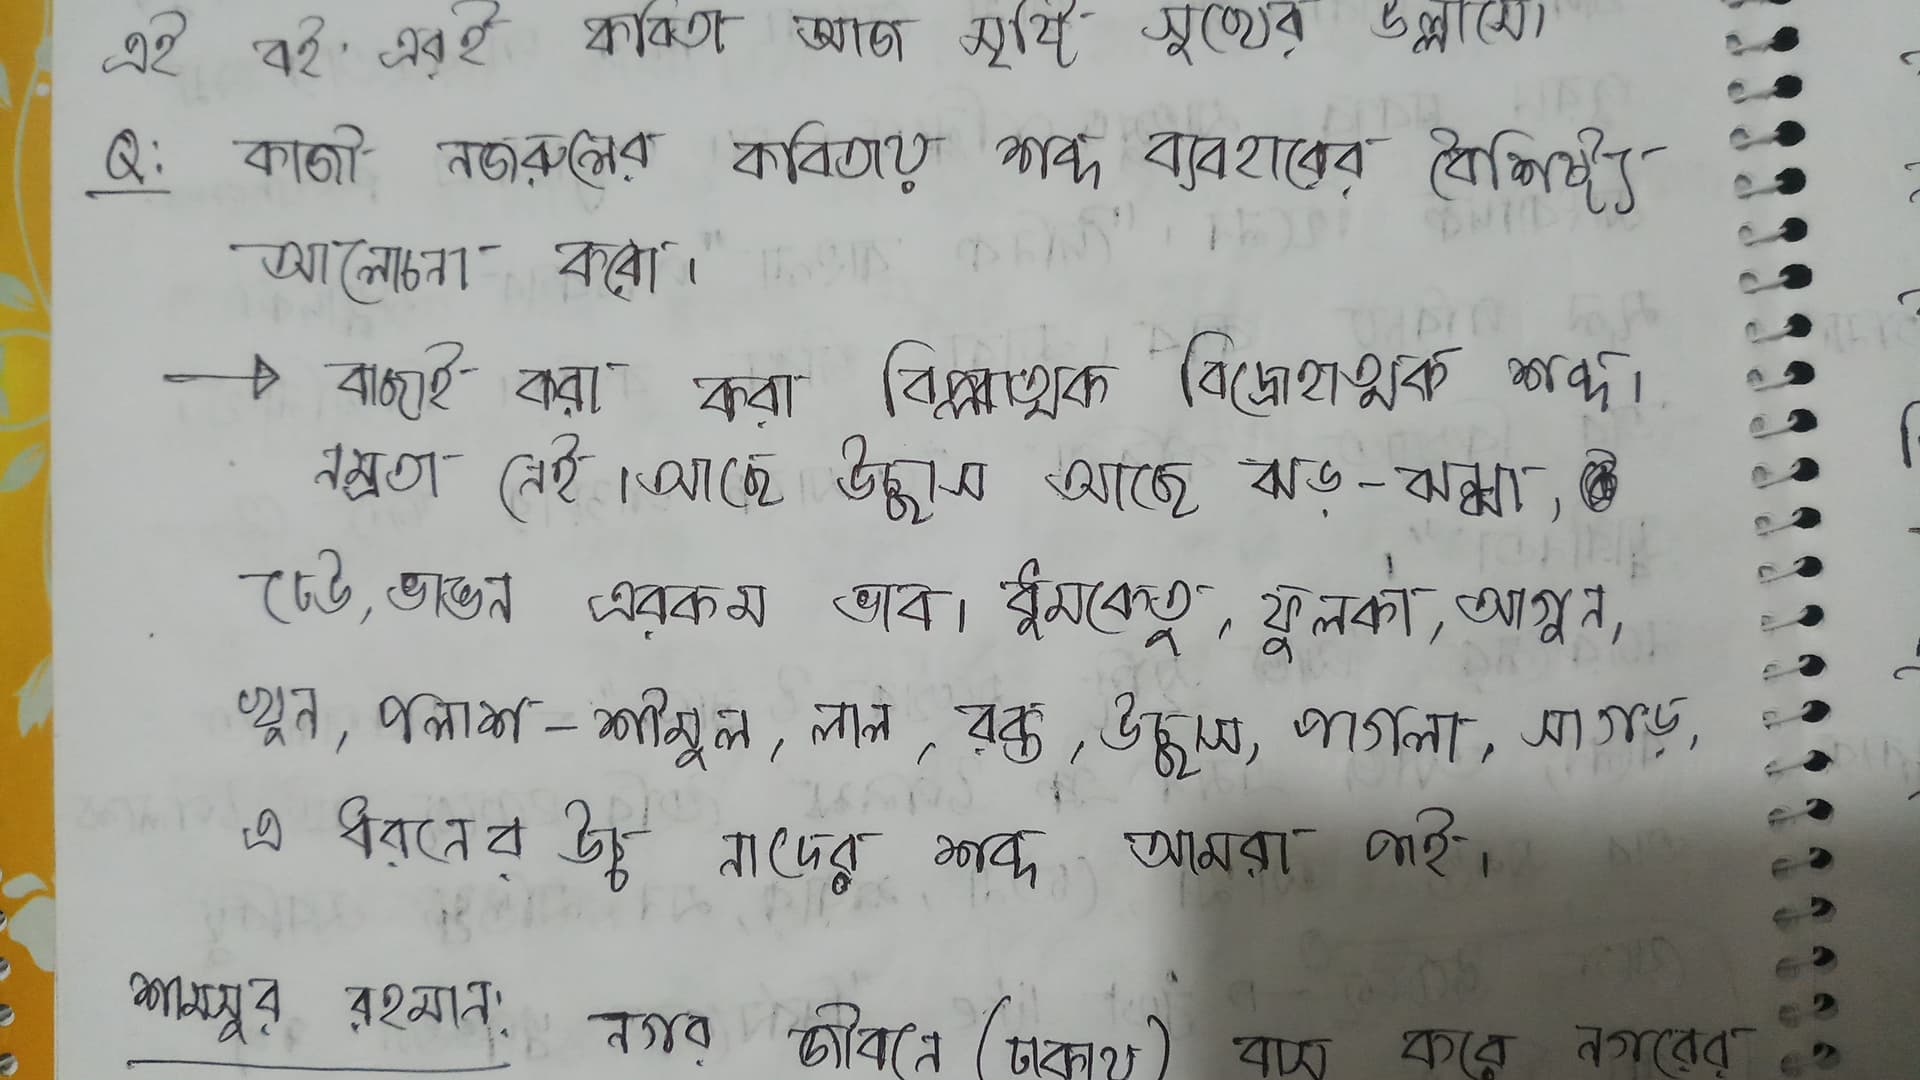 এই বই এরই কবিতা আজ সৃষ্টি সুখের উল্লাসে।
Q: কাজী নজরুলের কবিতায় শব্দ ব্যবহারের বৈশিষ্ট্য
আলোচনা করো।
→ বাছাই করা করা বিপ্লবাত্মক বিদ্রোহাত্মক শব্দ।
নম্রতা নেই। আছে উচ্ছাস আছে ঝড়-ঝঞ্ঝা,
ঢেউ, ভাঙন এরকম ভাব। ধুমকেতু, ফুলকী, আগুন,
খুন, পলাশ-শীমুল, লাল, রক্ত, উচ্ছাস, পাগলা, সাগড়,
এ ধরনের উচ্চ নাদের শব্দ আমরা পাই।
শামসুর রহমান: নগর জীবনে (ঢাকায়) বাস করে নগরের